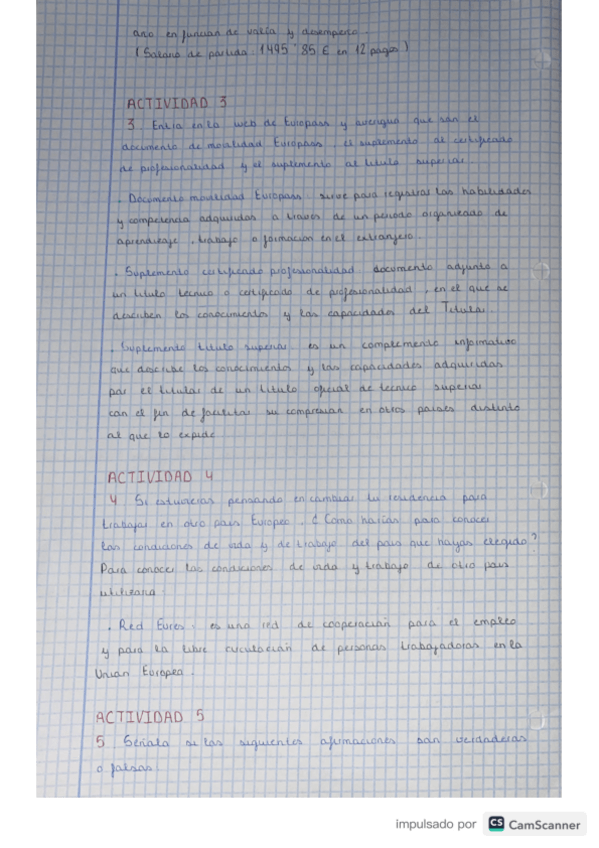 ano en funcion de valia y desempeño.
(Salario de partida 1495'85 € en 12 pagos)
ACTIVIDAD 3
3. Entra en la web de Europass y averigua que son el
documento de movilidad Europass, el suplemento al certificado
de profesionalidad y el suplemento al titulo superior
. Documento movilidad Europass: sirve para registrar las habilidades
y competencia adquiridas a traves de un periodo organizado de
aprendizaje, trabajo o formacion en el extranjero.
. Suplemento certificado profesionalidad: documento adjunto a
un titulo tecnico o certificado de profesionalidad, en el que se
describen los conocimientos y las capacidades del Titular.
. Suplemento titulo superior: es un complemento informativo
que describe los conocimientos y las capacidades adquiridas
por el titular de un titulo oficial de tecnico superior
con el fin de facilitar su comprension en otros paises distinto
al que lo expide
ACTIVIDAD 4
4 Si estuvieras pensando en cambiar tu residencia para
trabajar en otro pais Europeo. ¿Como harias para conocer
las condiciones de vida y de trabajo del pais que hayas elegido?
Para conocer las condiciones de vida y trabajo de otro pais
utilizaria
. Red Eures: es una red de cooperacion para el empleo
y para la libre circulacion de personas trabajadoras en la
Union Europea.
ACTIVIDAD 5
5 Señala si las siguientes afirmaciones son verdaderas
o falsas
impulsado por CS CamScanner